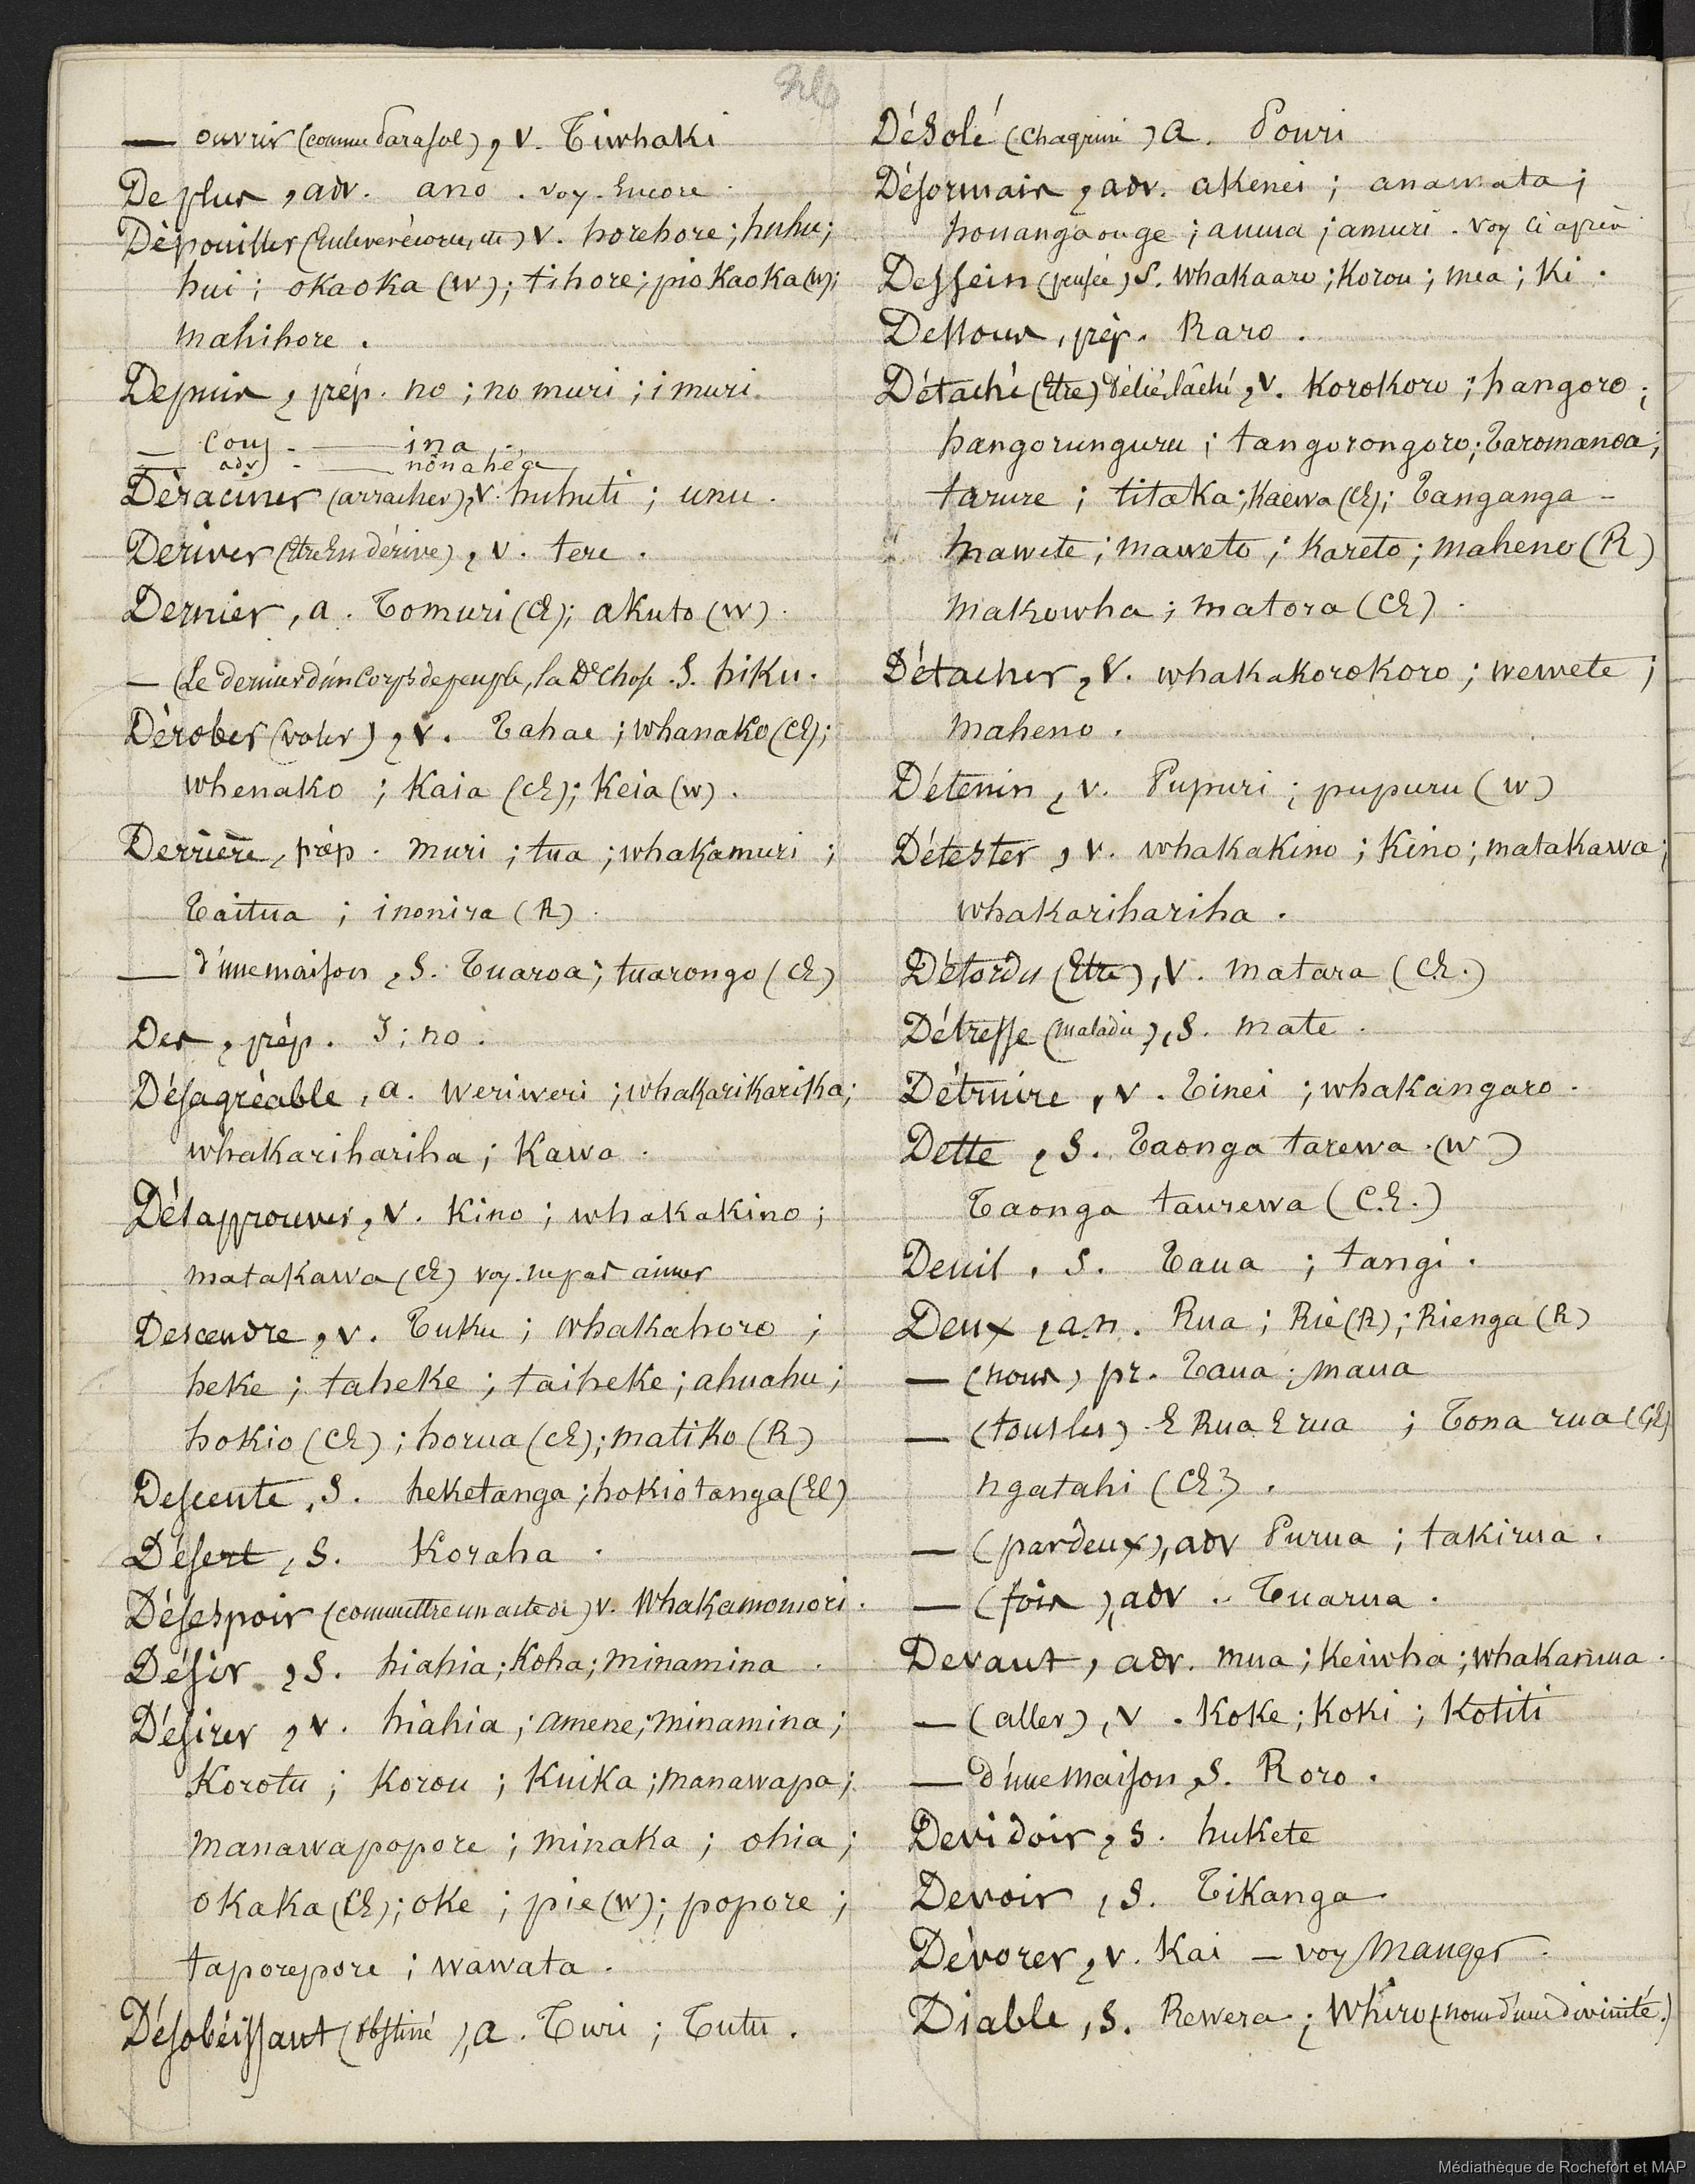 — ouvrir (comme parasol), v. Tiwhaki
De plus, adv. ano. voy. Encore.
Dépouiller (Enlever écorce, etc) v. horehore; huhu;
hui; okaoka (W); tihore; piokaoka (W);
mahihore.
Depuis, prép. no; no muri; i muri.
— Conj. — ina.
— adv. — nônahea
Déraciner (arracher), v. huhuti; unu.
Deriver (Etre En dérive), v. tere.
Dernier, a. Tomuri (CE); akuto (W).
— (Le dernier d'un Corps de peuple, la De Chose. S. hiku.
Dérober (voler), v. Tahae; whanako (CE);
whenako; Kaia (CE); Keia (W).
Derrière, prép. muri; tua; whakamuri;
Taitua; inonira (R).
— d'une maison, S. Tuaroa; tuarongo (CE)
Des, prép. I; no.
Désagréable, a. weriweri; whakarikarika;
whakarihariha; Kawa.
Désapprouver, v. Kino; whakakino;
matakawa (CE) voy. ne pas aimer
Descendre, v. Tuku; whakahoro;
heke; taheke; taiheke; ahuahu;
hokio (CE); horua (CE); matiko (R)
Descente, S. heketanga; hokiotanga (CE)
Désert, S. Koraha.
Désespoir (commettre un acte de) v. Whakamomori.
Désir, S. hiahia; Koha; minamina.
Désirer, v. hiahia; amene; minamina;
Korotu; Korou; Kuika; manawapa;
manawapopore; minaka; ohia;
okaka (CE); oke; pie (W); popore;
taporepore; wawata.
Désobéissant (obstiné), a. Turi; Tutu.
Désolé (Chagrini) a. Pouri
Désormais, adv. akenei; anamata;
houangaonge; amua; amuri. voy Ci après
Dessein (pensée) S. Whakaaro; Korou; mea; Ki.
Dessous, prép. Raro.
Détaché (Etre) Délié, lâché, v. Korokoro; hangoro;
hangorunguru; tangorongoro; Taromanoa;
tarure; titaka; Kaewa (CE); Tanganga -
Mawete; maweto; Kareto; maheno (R)
Makowha; matora (CE).
Détacher, V. whakakorokoro; wewete;
Maheno.
Détenir, v. Pupuri; pupuru (W)
Détester, v. whakakino; Kino; matakawa;
whakarihariha.
Détordu (Etre), v. matara (CE.)
Détresse (maladie), S. mate.
Détruire, v. Tinei; whakangaro.
Dette, S. Taonga tarewa. (W)
Taonga taurewa (C.E.)
Deuil, S. Taua; tangi.
Deux, a.n. Rua; Rie (R); Rienga (R)
— (nous) pr. Taua; maua
— (tous les) E Rua E rua; Tona rua (CE)
ngatahi (CE).
— (par deux), adv Purua; takirua.
— (fois), adv. Tuarua.
Devant, adv. mua; Keiwha; whakamua.
— (aller), v. Koke; Koki; Kotiti
— d'une maison, S. Roro.
Devidoir, S. hukete
Devoir, S. Tikanga.
Dévorer, v. Kai — voy Manger.
Diable, S. Rewera; Whiro (nom d'une divinité.)
Médiathèque de Rochefort et MAP